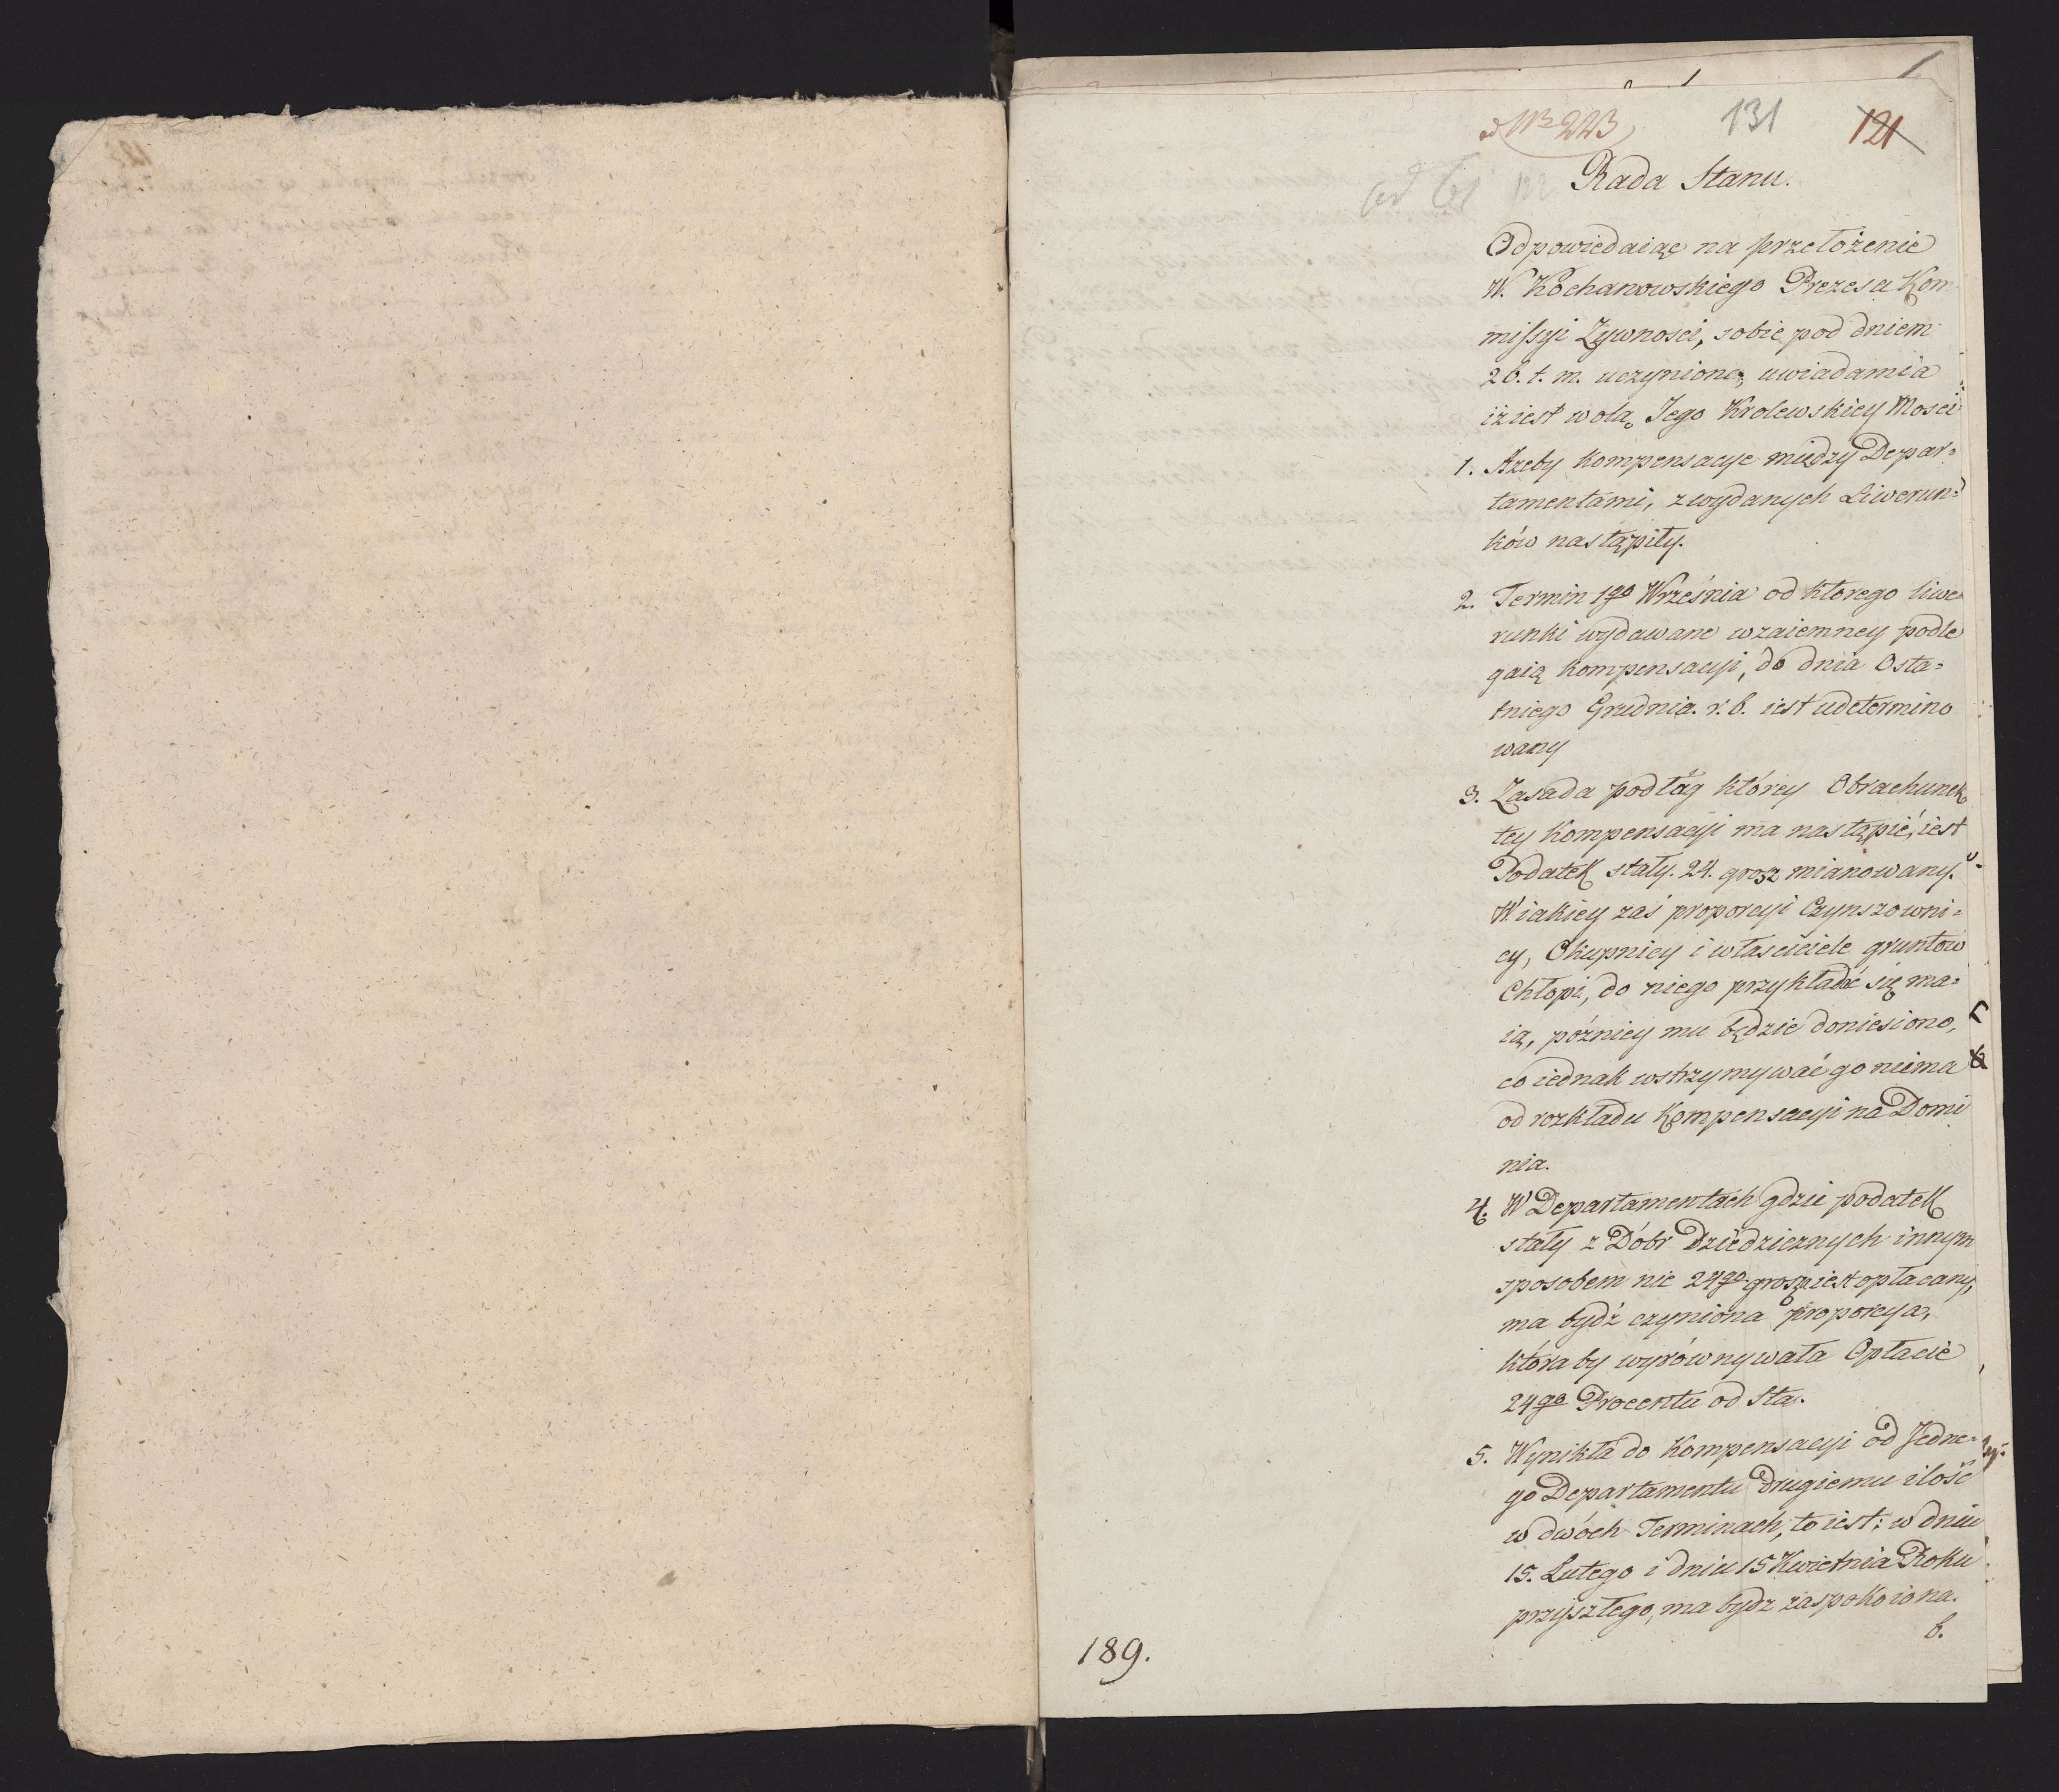 ad Nro 223
131
121
Rada Stanu.
Odpowiedaiąc na przełożenie
W. Kochanowskiego Prezesa Kom
missyi Zywnosci, sobie pod dniem
26. t. m. uczynione, uwiadamia
iż iest wolą Jego Krolewskiey Mosci
1. Ażeby kompensacye między Depar=
tamentami, z wydanych Liwerun=
ków nastąpiły.
2. Termin 1go Września od ktorego liwe
runki wydawane wzaiemney podle
gaią kompensacyi, do dnia Osta=
tniego Grudnia. r. b. iest udetermino
wany
3. Zasada podług którey Obrachunek
tey Kompensacyi ma nastąpić, iest
Podatek stały. 24. grosz mianowany.
W iakiey zaś proporcyi Czynszowni=
cy, Okupnicy i właściciele gruntow
Chłopi, do niego przykładać się ma=
ią, późniey mu będzie doniesiono,
co iednak wstrzymywać go niema
od rozkładu Kompensacyi na Domi
nia.
4. W Departamentach gdzie podatek
stały z Dóbr Dziedzicznych innym
sposobem nie 24go grosz iest opłacany,
ma bydź czyniona proporcya,
któraby wyrównywała Opłacie
24go Procentu od Sta.
5. Wynikła do Kompensacyi od Jedne=
go Departamentu drugiemu ilość
w dwóch Terminach, to iest: w dniu
15. Lutego i dniu 15 Kwietnia Roku
przyszłego, ma bydz zaspokoiona.
6.
189.